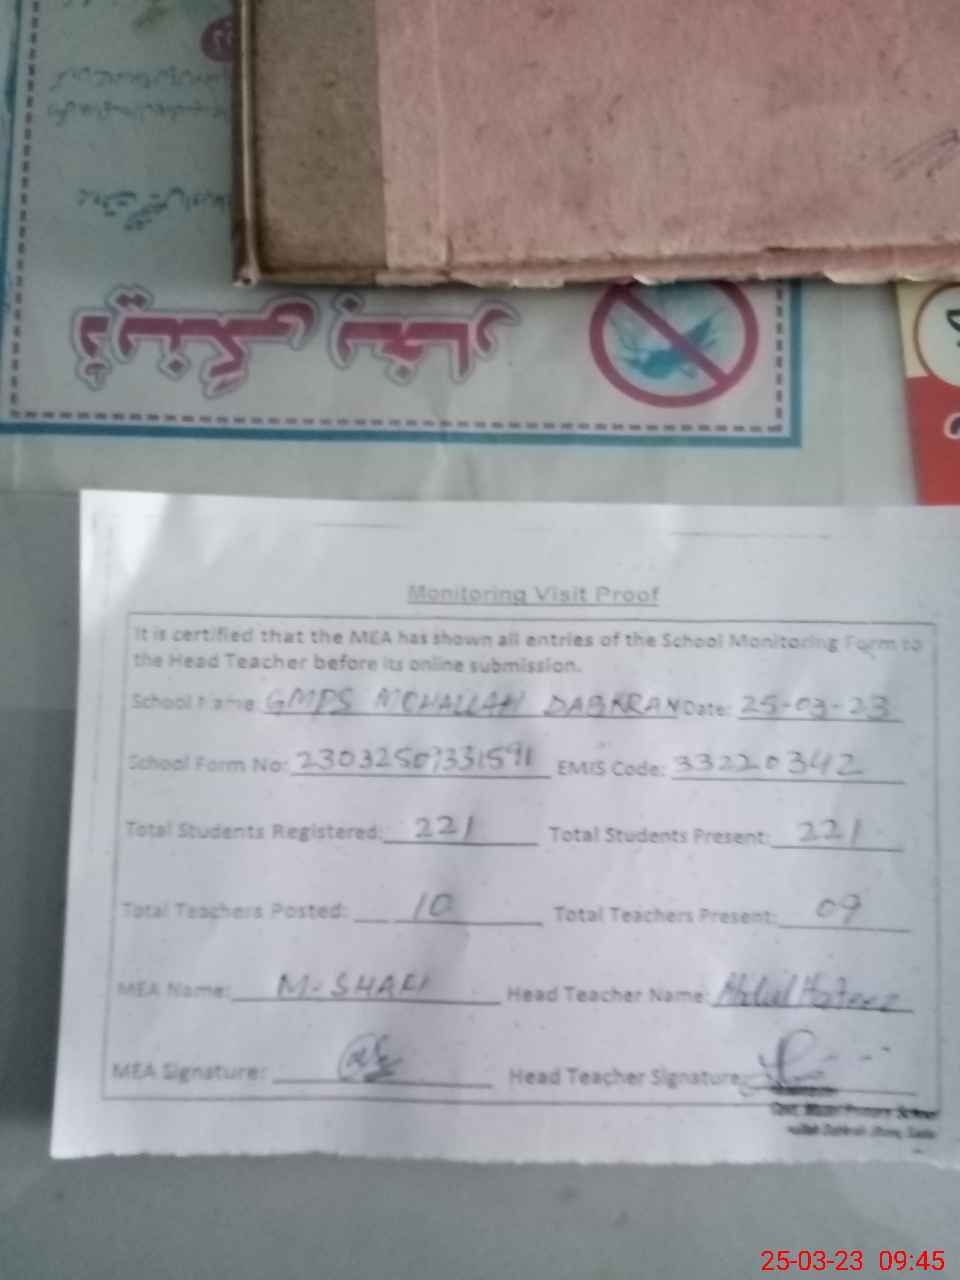 ڈینگی بخار
Monitoring Visit Proof
It is certified that the MEA has shown all entries of the School Monitoring Form to
the Head Teacher before its online submission.
School Name: GMPS MOHALLAH DABKRAN Date: 25-03-23
School Form No: 23032507331591 EMIS Code: 33220342
Total Students Registered: 221 Total Students Present: 221
Total Teachers Posted: 10 Total Teachers Present: 09
MEA Name: M. SHAFI Head Teacher Name: Abdul Hafeez
MEA Signature: Head Teacher Signature:
Govt. Model Primary School
25-03-23 09:45